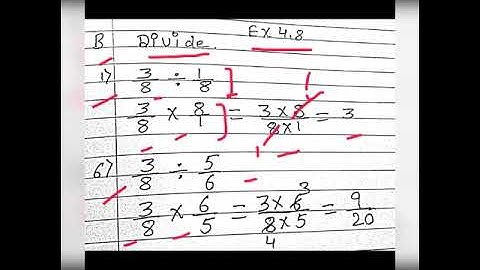 B Divide. Ex 4.8
1) 3/8 ÷ 1/8
3/8 × 8/1 = 3×8/8×1 = 3
6) 3/8 ÷ 5/6
3/8 × 6/5 = 3×6 3/8×5 4 = 9/20